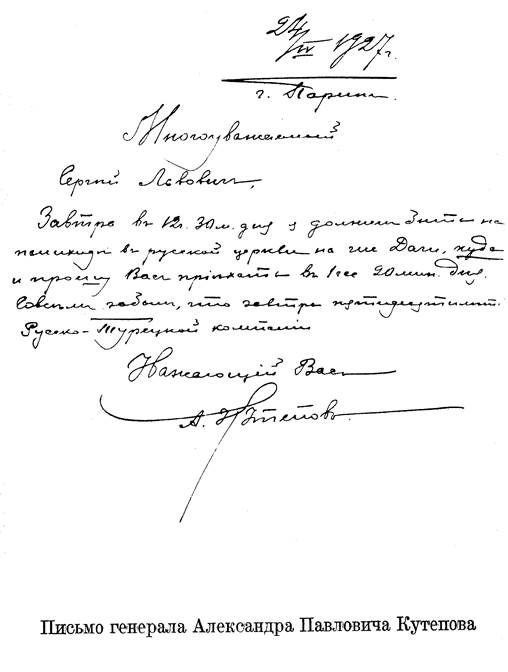 24/IV 1927 г.
г. Париж.
Многоуважаемый
Сергей Львович,
Завтра въ 12 ч. 30 м. дня я долженъ быть на
панихиде въ русской церкви на rue Daru, куда
и прошу Васъ прiѣхать въ 1 час 20 мин. дня.
Совсѣмъ забылъ, что завтра пятидесятилѣт.
Русско-Турецкой компанiи
Уважающiй Васъ
А. Кутеповъ.
Письмо генерала Александра Павловича Кутепова